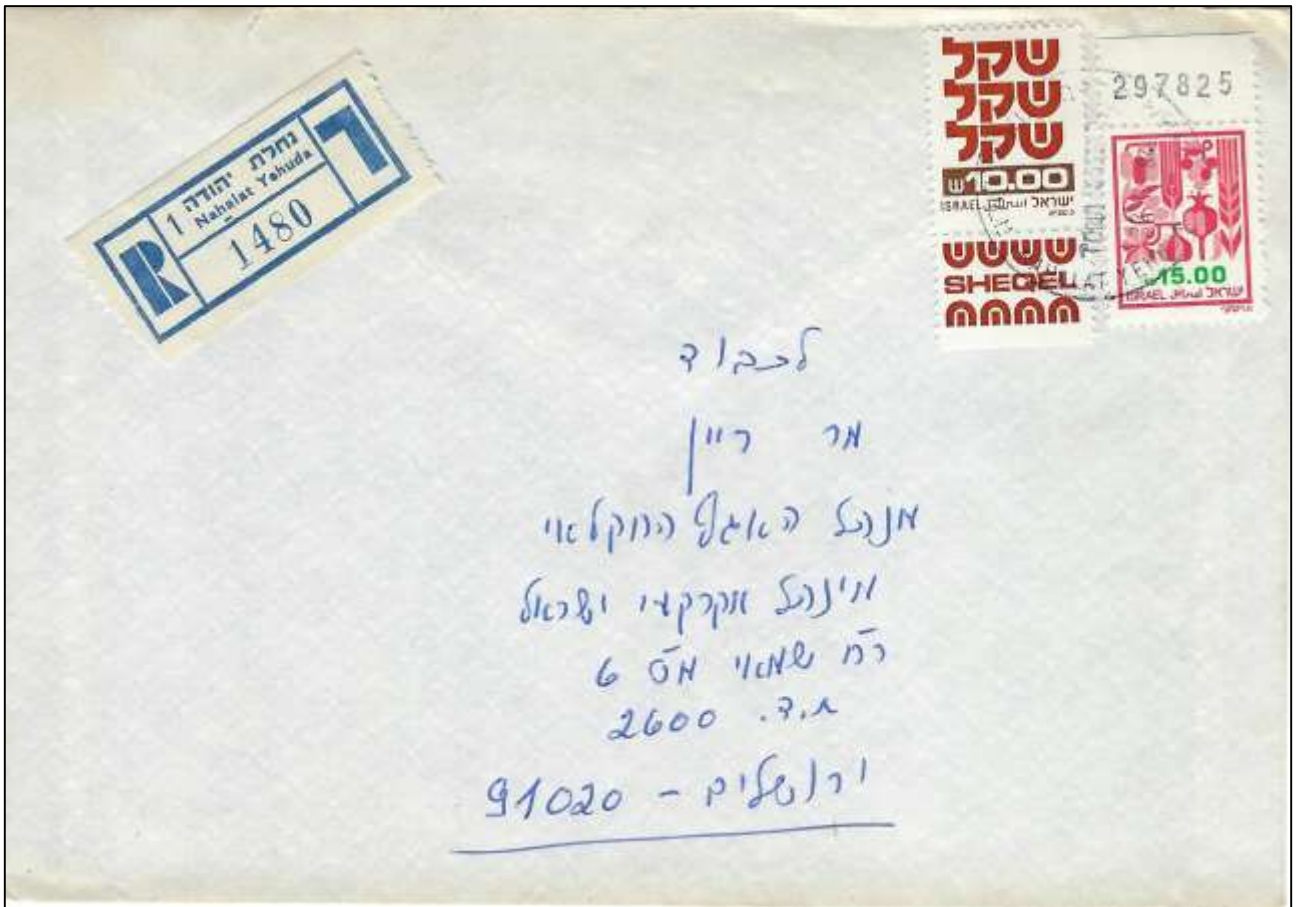 נחלת יהודה 1
Nahalat Yehuda
R
1480
ר
שקל
שקל
שקל
10.00
ISRAEL اسرائيل ישראל
SHEQEL
297825
15.00
ISRAEL اسرائيل ישראל
לכבוד
מר ריין
מנהל האגף החקלאי
מינהל מקרקעי ישראל
רח' שמאי מס' 6
ת.ד. 2600
ירושלים - 91020